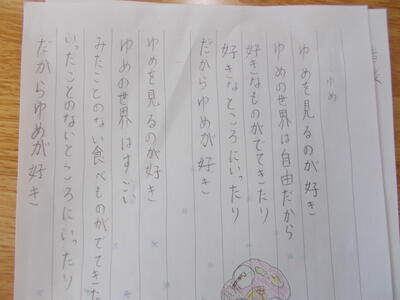 ゆめ
ゆめを見るのが好き
ゆめの世界は自由だから
好きなものがでてきたり
好きなところにいったり
だからゆめが好き
ゆめを見るのが好き
ゆめの世界はすごい
みたことのない食べものがでてきた
いったことのないところにいったり
だからゆめが好き